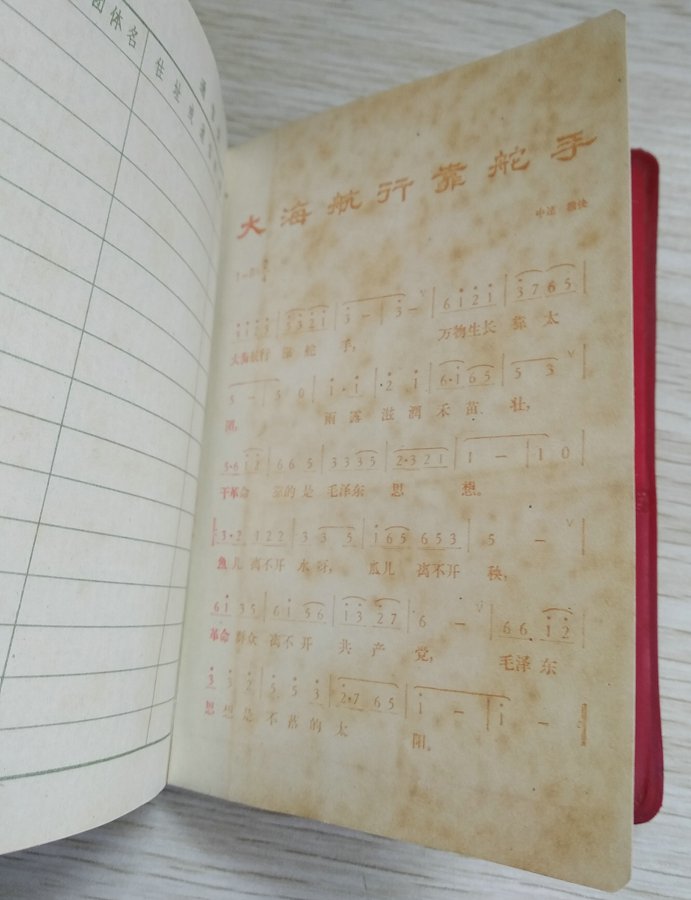 团体名
住址
大海航行靠舵手
1=
3 3 2 1 | 3 — | 3 — | 6 1 2 1 | 3 7 6 5
大海航行 靠 舵 手, 万物生长 靠 太
5 — | 5 0 | 1 · 1 | 2 1 | 6·1 6 5 | 5 3
阳, 雨 露 滋 润 禾 苗 壮,
5·6 1 2 | 6 6 5 | 3 3 3 5 | 2·3 2 1 | 1 — | 1 0
干革命 靠的是 毛泽东 思 想。
3·2 1 2 2 | 3 3 5 | 1 6 5 6 5 3 | 5 —
鱼儿 离不开 水呀, 瓜儿 离不开 秧,
6 1 3 5 | 6 1 5 6 | 1 3 2 7 | 6 — | 6 6 1 2
革命 群众 离不开 共 产 党, 毛泽东
3 3 2 | 5 5 3 | 2·7 6 5 | 1 — | 1 —
思 想 是 不 落 的 太 阳。